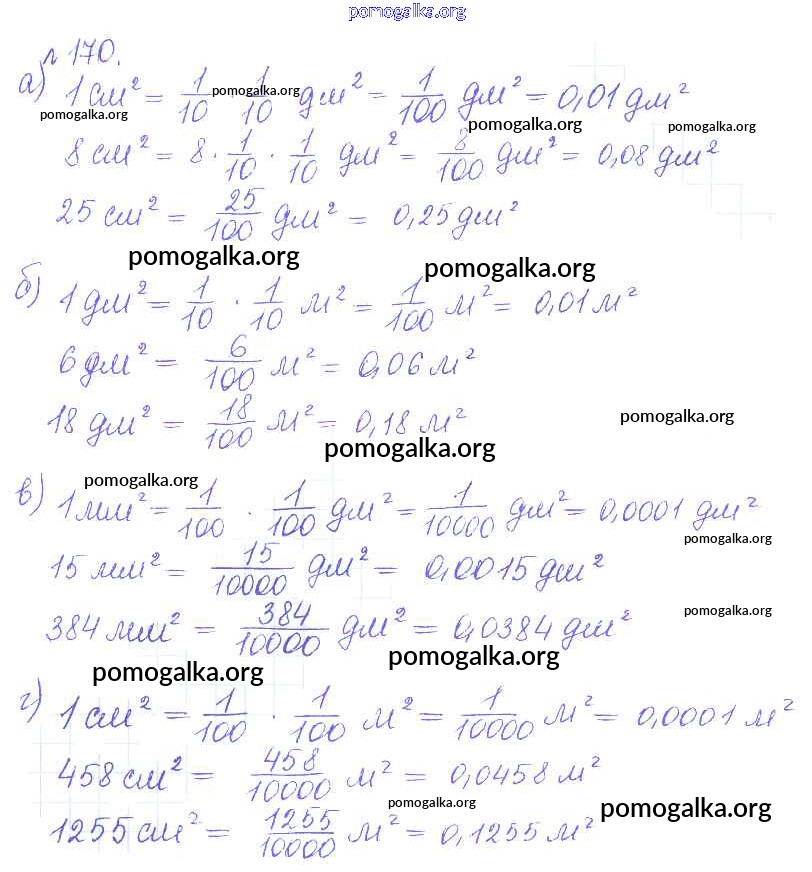 pomogalka.org
№ 170.
а) 1 см² = 1/10 pomogalka.org 1/10 дм² = 1/100 дм² = 0,01 дм²
pomogalka.org pomogalka.org pomogalka.org
8 см² = 8 · 1/10 · 1/10 дм² = 8/100 дм² = 0,08 дм²
25 см² = 25/100 дм² = 0,25 дм²
pomogalka.org pomogalka.org
б) 1 дм² = 1/10 · 1/10 м² = 1/100 м² = 0,01 м²
6 дм² = 6/100 м² = 0,06 м²
18 дм² = 18/100 м² = 0,18 м² pomogalka.org
pomogalka.org
pomogalka.org
в) 1 мм² = 1/100 · 1/100 дм² = 1/10000 дм² = 0,0001 дм²
pomogalka.org
15 мм² = 15/10000 дм² = 0,0015 дм²
pomogalka.org
384 мм² = 384/10000 дм² = 0,0384 дм²
pomogalka.org pomogalka.org
г) 1 см² = 1/100 · 1/100 м² = 1/10000 м² = 0,0001 м²
458 см² = 458/10000 м² = 0,0458 м²
pomogalka.org pomogalka.org
1255 см² = 1255/10000 м² = 0,1255 м²